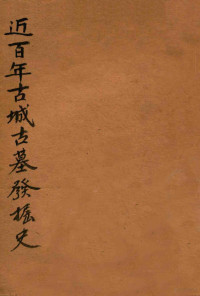 近百年古城古墓發掘史